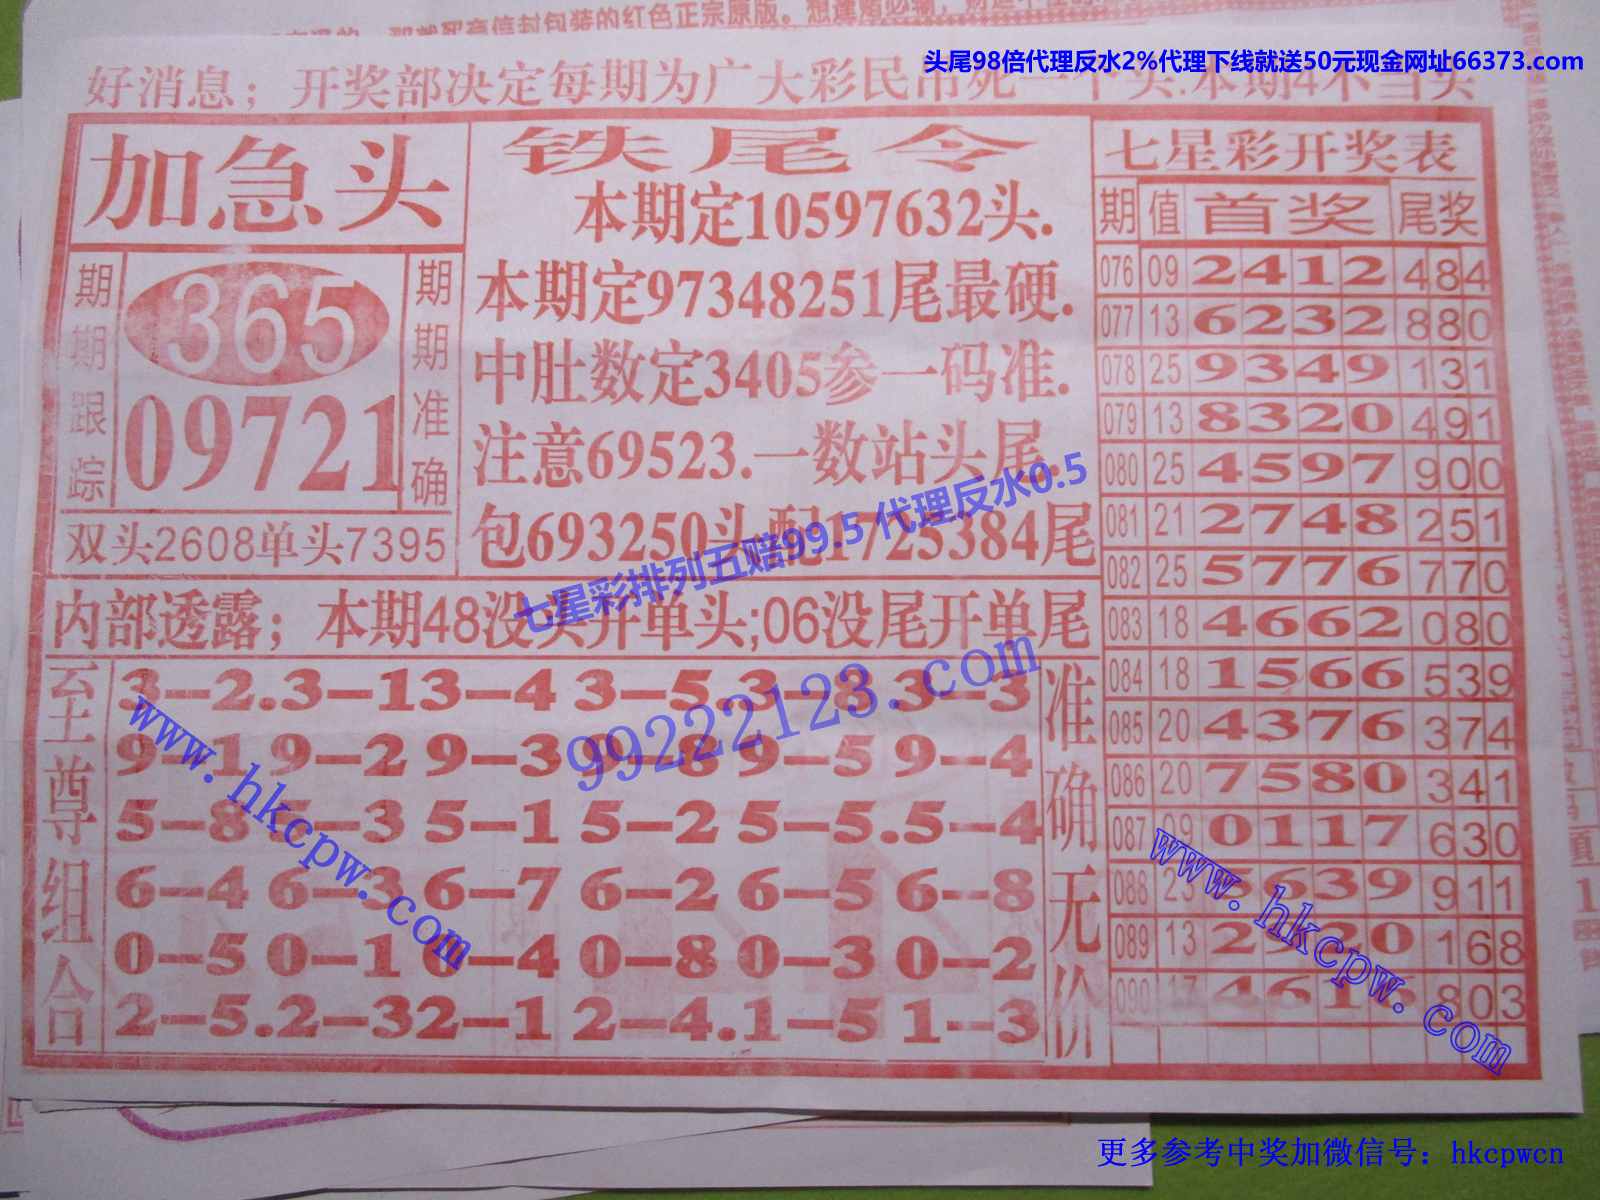 头尾98倍代理反水2%代理下线就送50元现金网址66373.com
好消息；开奖部决定每期为广大彩民吊死一个头.本期4不当头
加急头
期期跟踪
365
09721
期期准确
双头2608单头7395
铁尾令
本期定10597632头.
本期定97348251尾最硬.
中肚数定3405参一码准.
注意69523.一数站头尾.
包693250头配1725384尾
七星彩排列五赔99.5 代理反水0.5
内部透露；本期48没头开单头;06没尾开单尾
至尊组合
3-2.3-13-4 3-5.3-8.3-3
9-19-2 9-39-8 9-5 9-4
5-85-3 5-1 5-2 5-5.5-4
6-4 6-3 6-7 6-2 6-5 6-8
0-5 0-1 0-4 0-8 0-3 0-2
2-5.2-32-1 2-4.1-5 1-3
准确无价
七星彩开奖表
期 值 首奖 尾奖
076 09 2412 484
077 13 6232 880
078 25 9349 131
079 13 8320 491
080 25 4597 900
081 21 2748 251
082 25 5776 770
083 18 4662 080
084 18 1566 539
085 20 4376 374
086 20 7580 341
087 09 0117 630
088 23 5639 911
089 13 2920 168
090 17 461 803
www.hkcpw.com
99222123.com
www.hkcpw.com
更多参考中奖加微信号：hkcpwcn